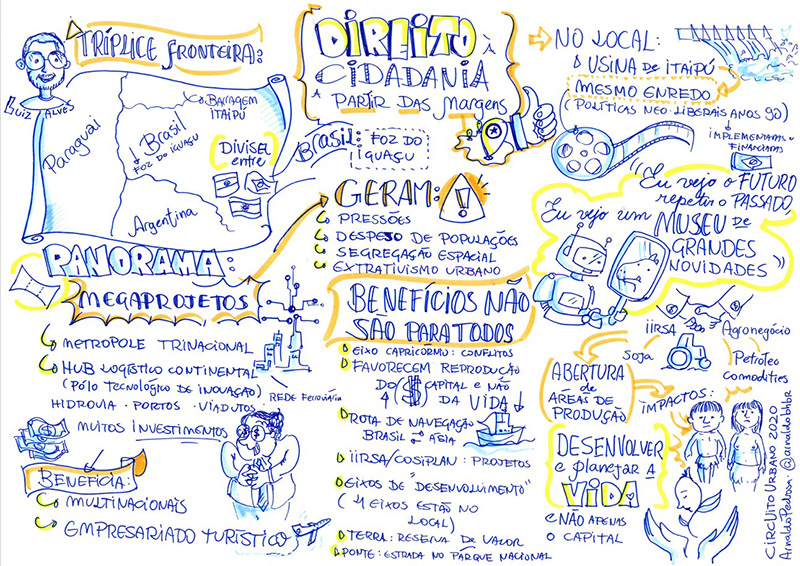 TRÍPLICE FRONTEIRA:
LUIZ ALVES
Paraguai
Brasil
↓ FOZ DO IGUAÇU
BARRAGEM
ITAIPÚ
DIVISA
entre
Argentina
DIREITO À
CIDADANIA
A PARTIR DAS MARGENS
BRASIL: FOZ DO
IGUAÇU
NO LOCAL:
USINA DE ITAIPÚ
MESMO ENREDO
(POLÍTICAS NEO-LIBERAIS ANOS 90)
IMPLEMENTADAS
FINANCIADAS
"Eu vejo o FUTURO
repetir o PASSADO,
Eu vejo um MUSEU DE
GRANDES
NOVIDADES"
PANORAMA:
MEGAPROJETOS
METRÓPOLE TRINACIONAL
HUB LOGÍSTICO CONTINENTAL
(PÓLO TECNOLÓGICO DE INOVAÇÃO)
REDE FERROVIÁRIA
HIDROVIA · PORTOS · VIADUTOS
MUITOS INVESTIMENTOS
BENEFICIA:
MULTINACIONAIS
EMPRESARIADO TURÍSTICO
GERAM:
PRESSÕES
DESPEJO DE POPULAÇÕES
SEGREGAÇÃO ESPACIAL
EXTRATIVISMO URBANO
BENEFÍCIOS NÃO
SÃO PARA TODOS
EIXO CAPRICORNIO: CONFLITOS
FAVORECEM REPRODUÇÃO
DO CAPITAL E NÃO
DA VIDA
ROTA DE NAVEGAÇÃO
BRASIL ⇄ ÁSIA
IIRSA/COSIPLAN: PROJETOS
EIXOS DE "DESENVOLVIMENTO"
(4 EIXOS ESTÃO NO
LOCAL)
TERRA: RESERVA DE VALOR
PONTE: ESTRADA NO PARQUE NACIONAL
IIRSA
Agronegócio
Soja
Petróleo
commodities
ABERTURA
de
ÁREAS DE
PRODUÇÃO
IMPACTOS:
DESENVOLVER
e planejar A
VIDA
E NÃO APENAS
O CAPITAL
CIRCUITO URBANO 2020